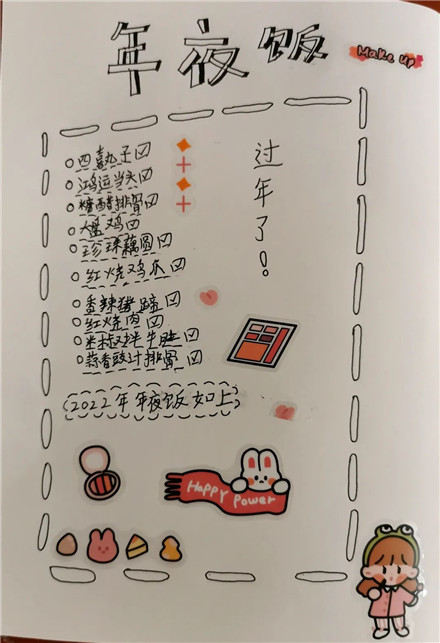 年夜饭
Make up
四喜丸子
鸿运当头
糖醋排骨
大盘鸡
珍珠藕圆
红烧鸡爪
香辣猪蹄
红烧肉
米椒拌牛肚
蒜香豉汁排骨
(2022年年夜饭如上)
过年了!
Happy Power